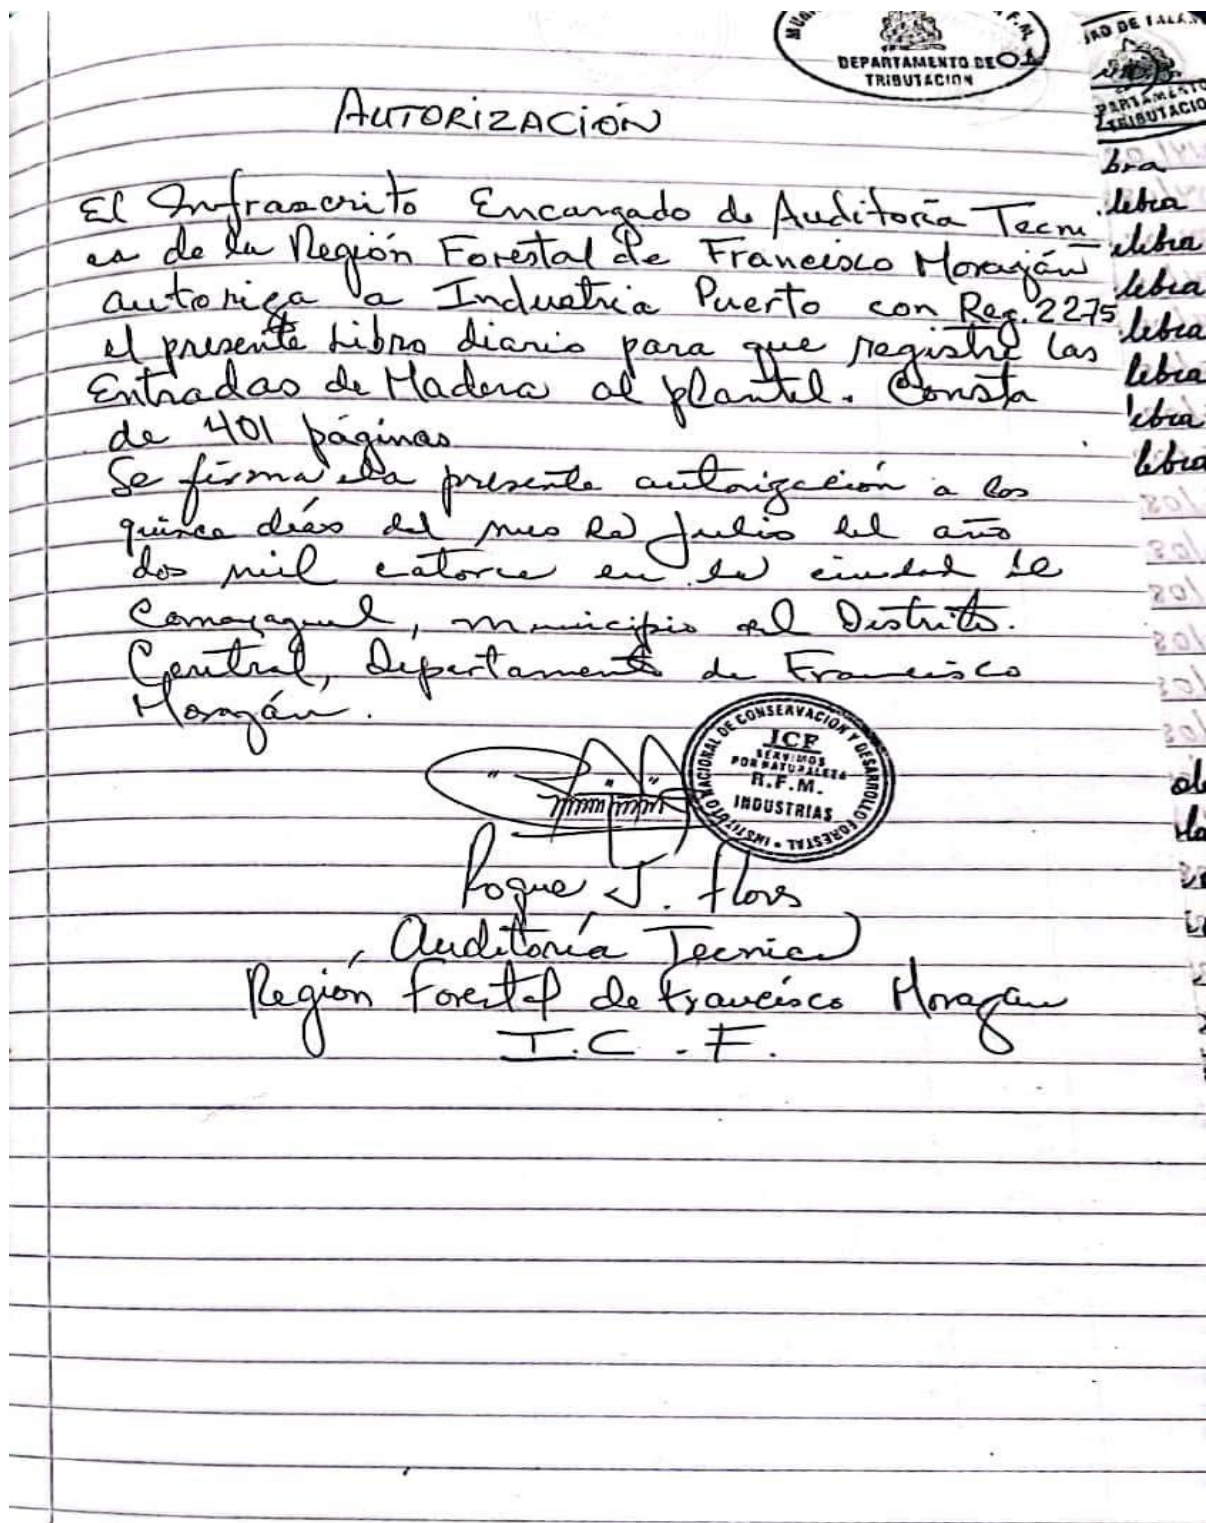 DEPARTAMENTO DE
TRIBUTACION
01
AUTORIZACIÓN
El Infrascrito Encargado de Auditoría Tecni
ca de la Región Forestal de Francisco Morazán
autoriza a Industria Puerto con Reg. 2275
el presente Libro diario para que registre las
Entradas de Madera al plantel. Consta
de 401 páginas
Se firma la presente autorización a los
quince días del mes de Julio del año
dos mil catorce en la ciudad de
Comayaguel, municipio del Distrito.
Central, Departamento de Francisco
Morazán.
INSTITUTO NACIONAL DE CONSERVACION Y DESARROLLO FORESTAL
ICF
SERVIMOS
POR NATURALEZA
R.F.M.
INDUSTRIAS
Roque J. Flores
Auditoría Tecnica
Región Forestal de Francisco Morazán
I.C.F.
bra
lebra
lebra
lebra
lebra
lebra
lebra
lebra